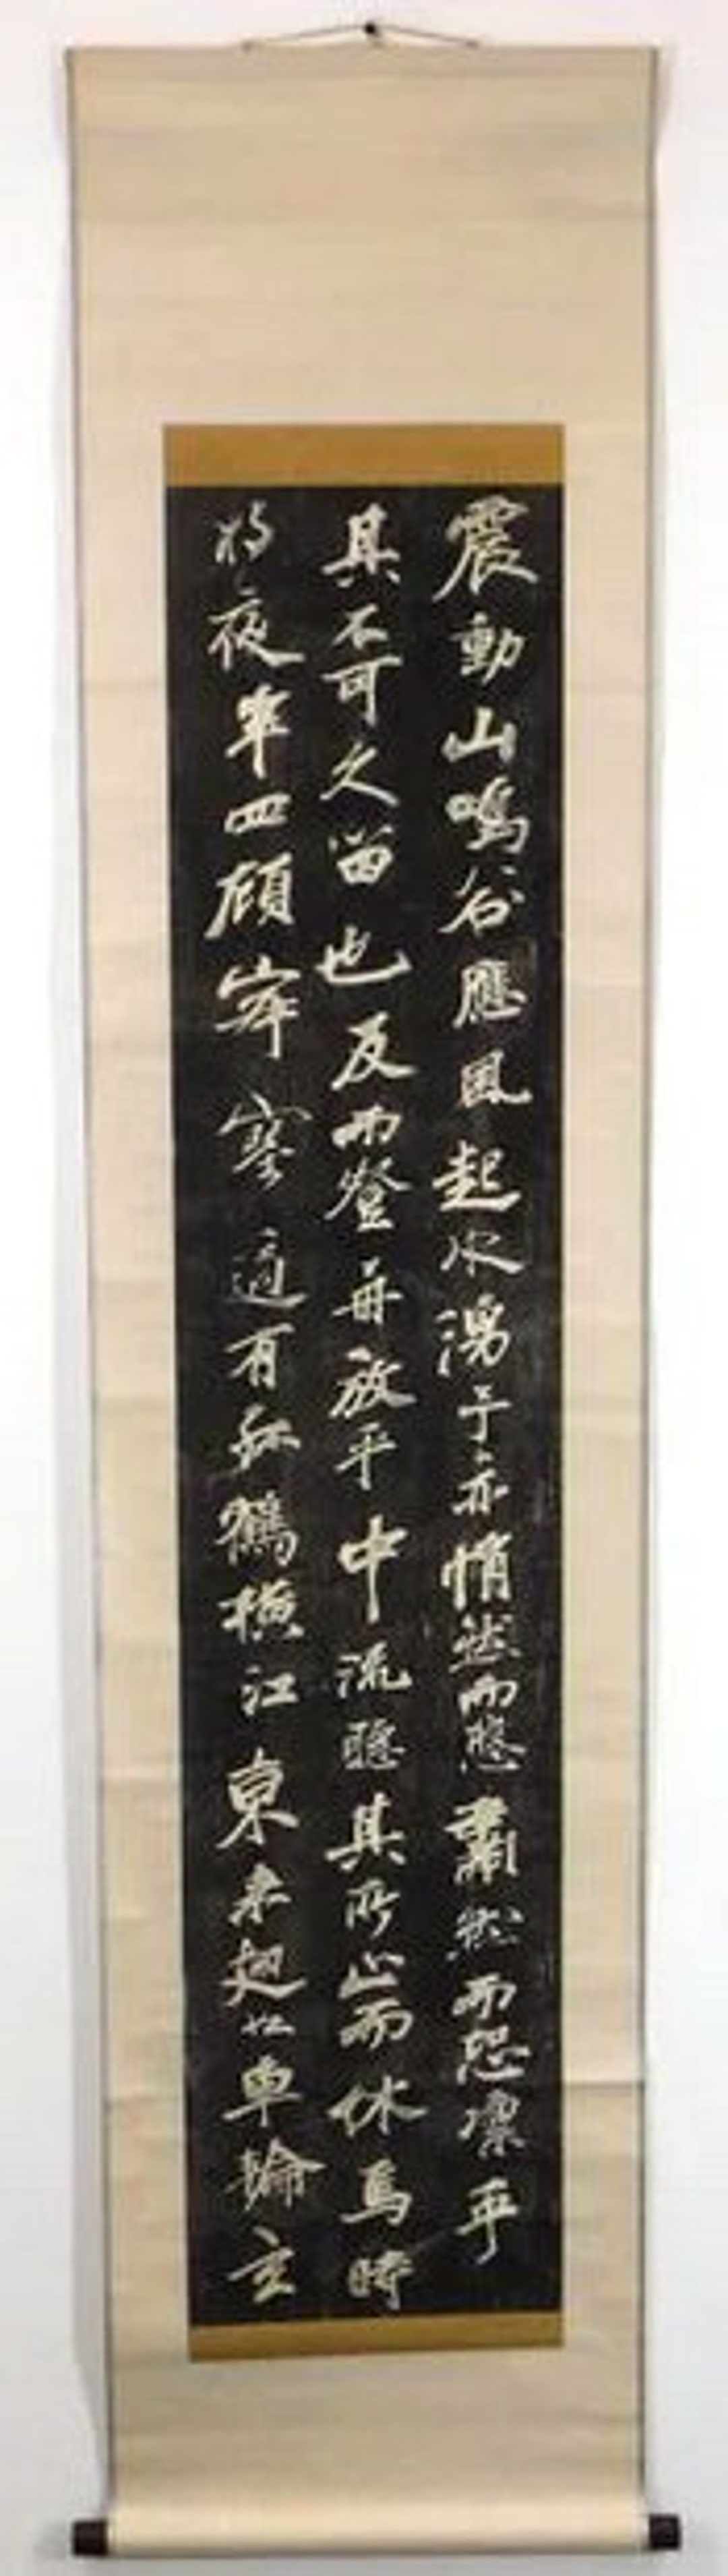 震動山鳴谷應風起水湧予亦悄然而悲肅然而恐凛乎
其不可久留也反而登舟放乎中流聽其所止而休焉時
將夜半四顧寂寥適有孤鶴橫江東来翅如車輪玄